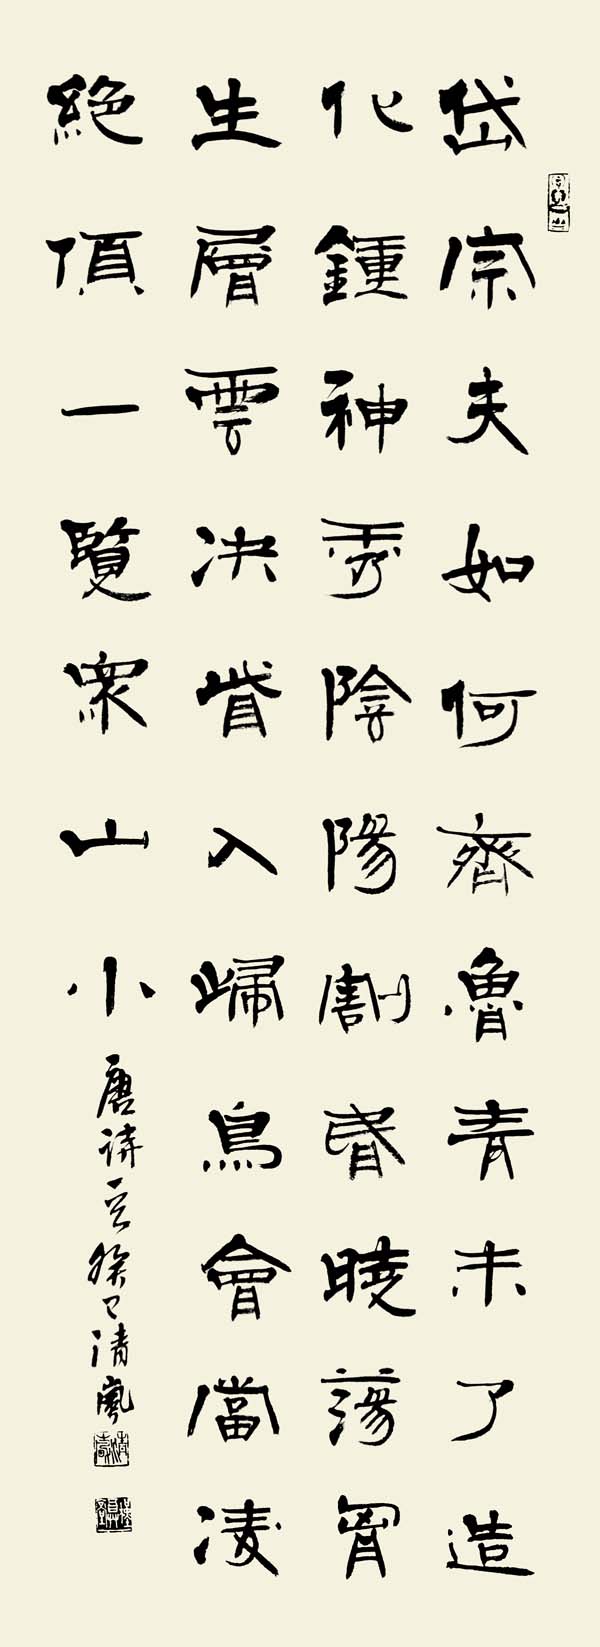 岱宗夫如何齊魯青未了造
化鍾神秀陰陽割昏曉蕩胸
生層雲決眥入歸鳥會當凌
絕頂一覽眾山小
唐詩一首癸巳清風